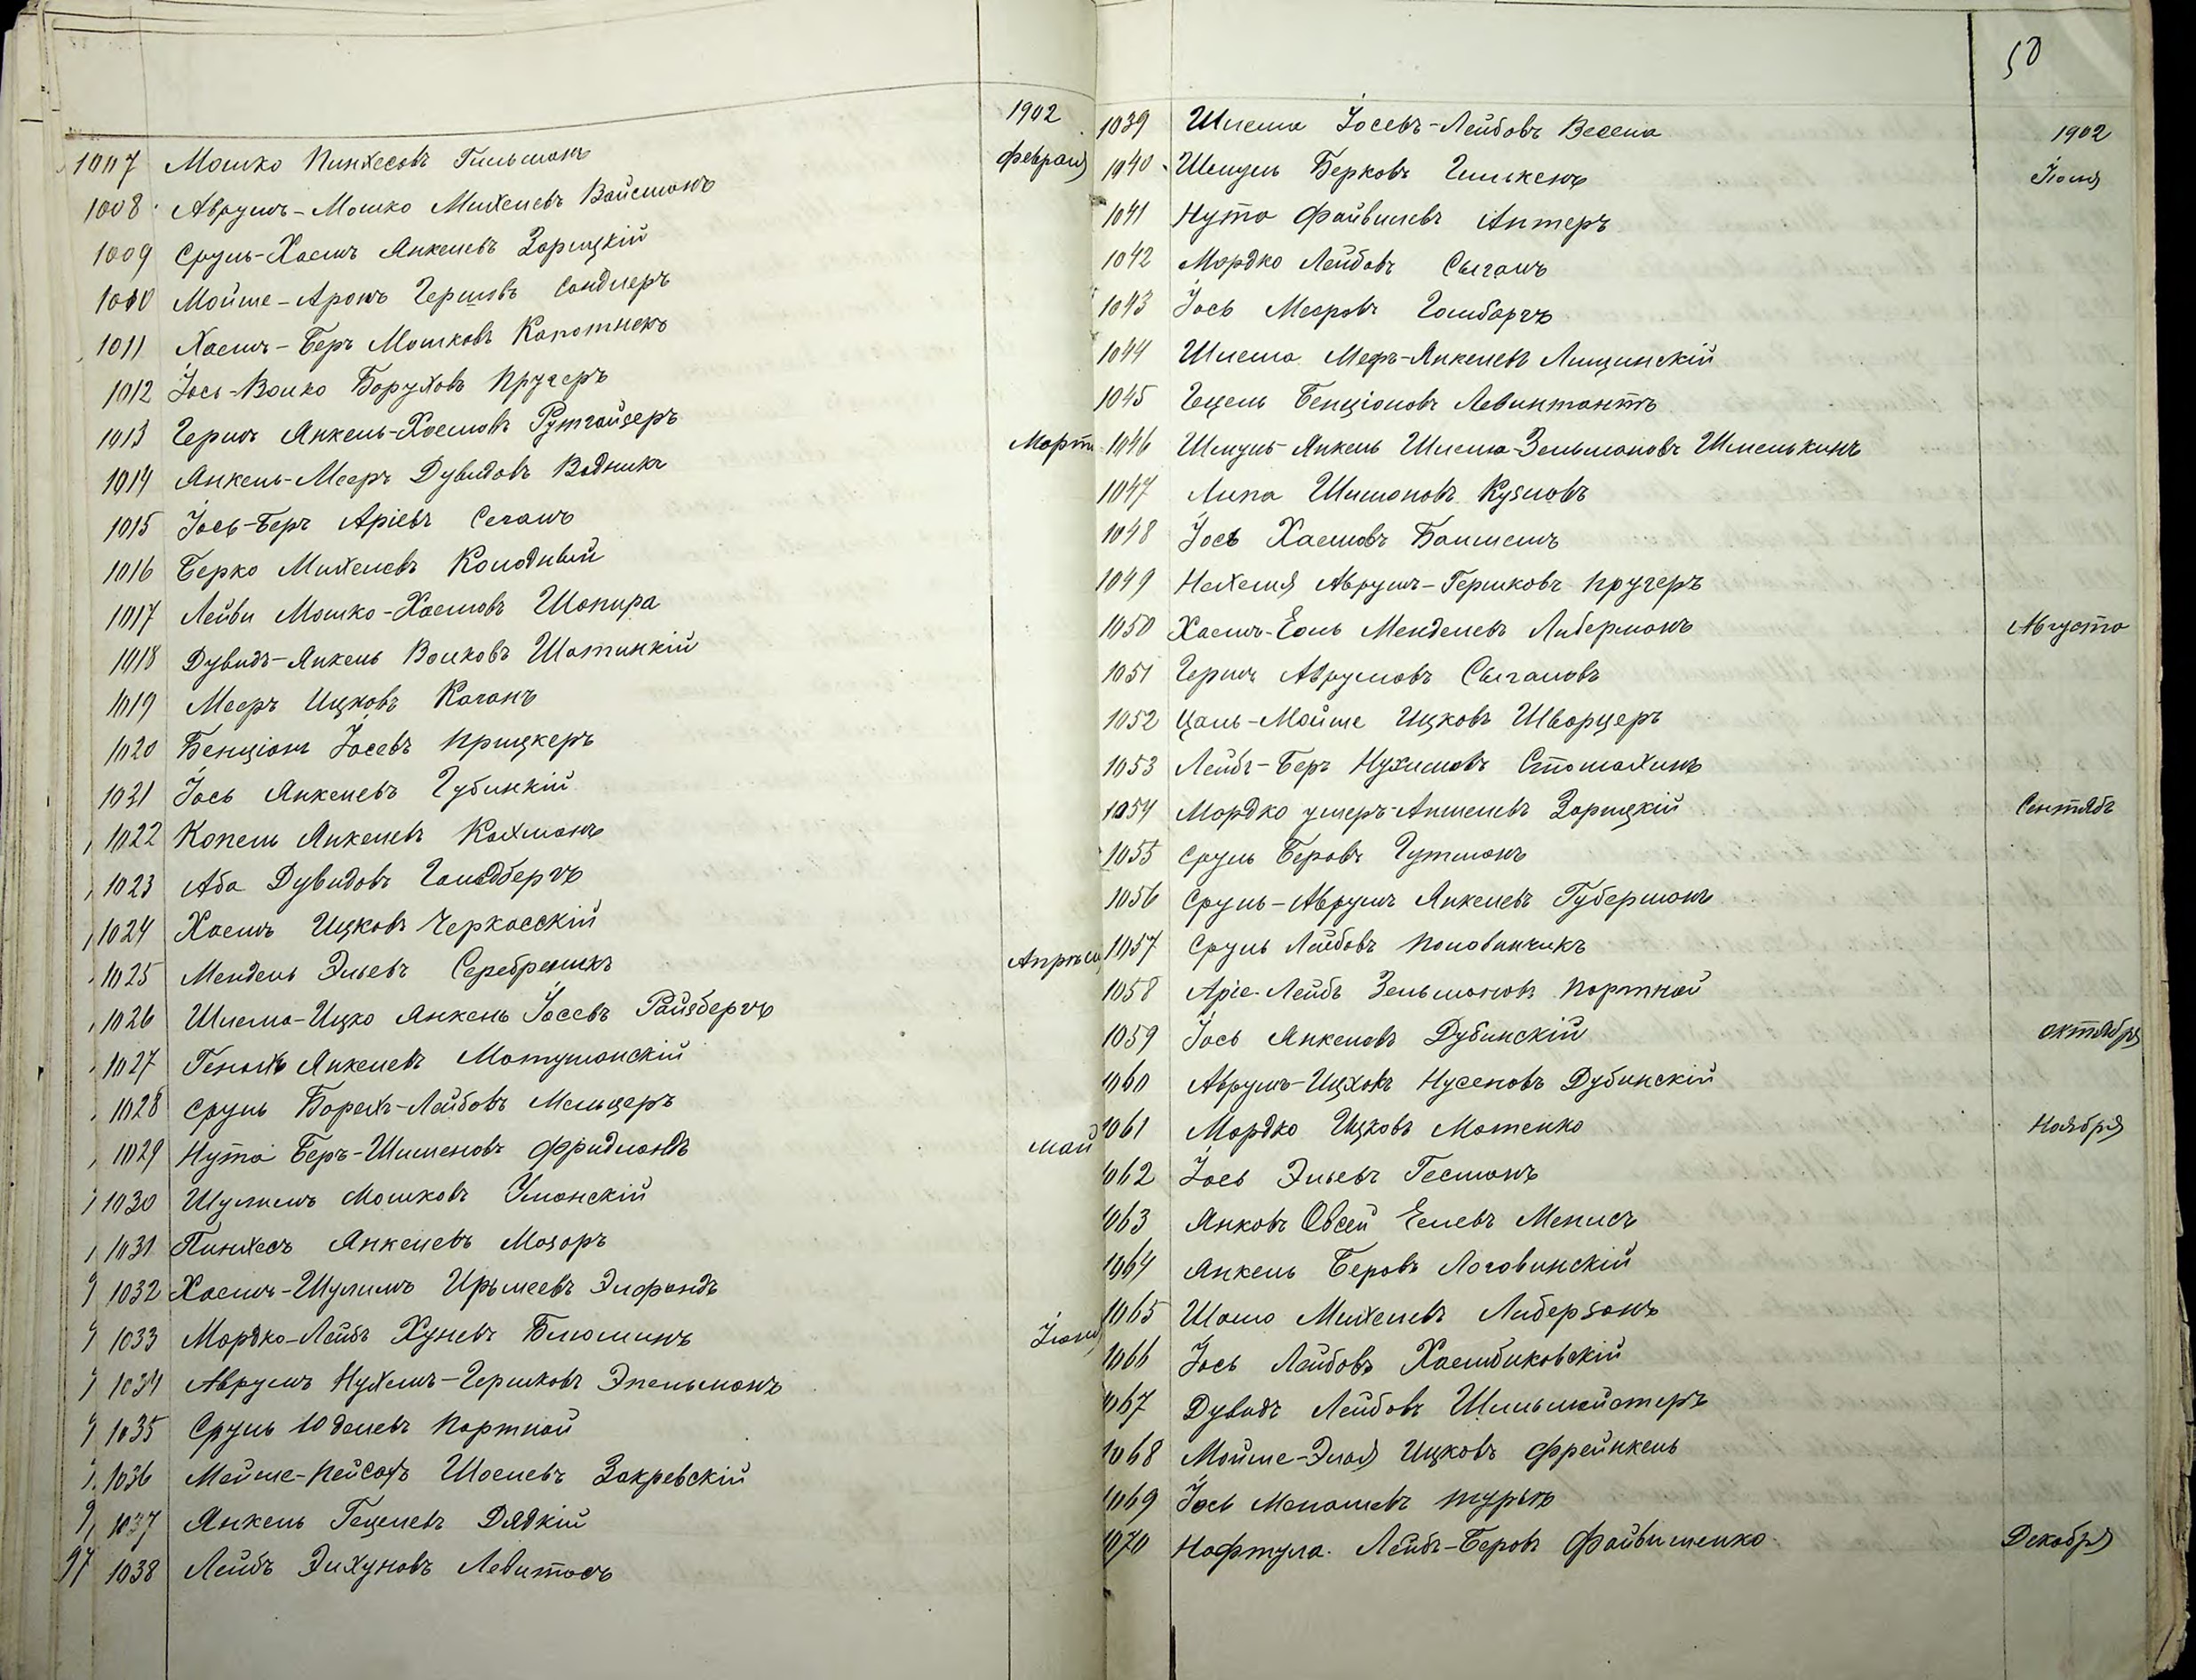 1902
1007 Мошко Пинхесовъ Гильманъ февраля
1008 Аврумъ-Мошко Михелевъ Вайсманъ
1009 Сруль-Хаимъ Янкелевъ Зарицкій
1010 Мойше-Аронъ Гершовъ Сандлеръ
1011 Хаимъ-Беръ Мошковъ Капотнекъ
1012 Іось-Волко Боруховъ Пругеръ
1013 Гершъ Янкель-Хаимовъ Рутгайзеръ Марта
1014 Янкель-Мееръ Дувидовъ Водникъ
1015 Іось-Беръ Аріевъ Сеганъ
1016 Берко Михелевъ Колодный
1017 Лейви Мошко-Хаимовъ Шапира
1018 Дувидъ-Янкель Волковъ Шатинкій
1019 Мееръ Ицковъ Каганъ
1020 Бенціонъ Іосевъ Прицкеръ
1021 Іось Янкелевъ Губинкій
1022 Копель Янкелевъ Кахманъ
1023 Аба Дувидовъ Гольдбергъ
1024 Хаимъ Ицковъ Черкасскій
1025 Мендель Эльевъ Серебреникъ Апрѣля
1026 Шлема-Ицко Янкель Іосевъ Райзбергъ
1027 Генахъ Янкелевъ Матушанскій
1028 Сруль Борехъ-Лейбовъ Мельцеръ
1029 Нута Беръ-Шименовъ Фридландъ май
1030 Шулимъ Мошковъ Уманскій
1031 Пинхесъ Янкелевъ Мазоръ
1032 Хаимъ-Шулимъ Ирымеевъ Элфандъ
1033 Мордко-Лейбъ Хуневъ Блюминъ Іюня
1034 Аврумъ Нухимъ-Гершковъ Эпельманъ
1035 Сруль Юделевъ Портной
1036 Мейше-Пейсахъ Шоелевъ Закревскій
1037 Янкель Гецелевъ Дядкій
97 1038 Лейбъ Элхуновъ Левитасъ
50
1902
1039 Шлема Іосевъ-Лейбовъ Весела
1040 Шмуль Берковъ Гимкенъ Іюля
1041 Нута Файвилевъ Аптеръ
1042 Мордко Лейбовъ Сыганъ
1043 Іось Мееровъ Гамбаргъ
1044 Шлема Меєръ-Янкелевъ Лищинскій
1045 Гецель Бенціоновъ Левинтантъ
1046 Шмуль-Янкель Шлема-Зельмановъ Шмелькинъ
1047 Липа Шимоновъ Кузловъ
1048 Іось Хаимовъ Балшемъ
1049 Нехемя Аврумъ-Гершковъ Пругеръ
1050 Хаимъ-Ель Менделевъ Либерманъ Августа
1051 Гершъ Аврумовъ Сыгановъ
1052 Цаль-Мойше Ицковъ Шварцеръ
1053 Лейбъ-Беръ Нухимовъ Стомахинъ
1054 Мордко ушеръ-Аншелевъ Зарицкій Сентябр
1055 Сруль Беровъ Гутманъ
1056 Сруль-Аврумъ Янкелевъ Губерманъ
1057 Сруль Лейбовъ Половинчикъ
1058 Аріе-Лейбъ Зельмановъ Портной
1059 Іось Янкеловъ Дубинскій октября
1060 Аврумъ-Ицхокъ Нусеновъ Дубинскій
1061 Мордко Ицковъ Матенко Ноября
1062 Іось Эльевъ Гесманъ
1063 Янковъ Овсей Елевъ Менисъ
1064 Янкель Беровъ Логовинскій
1065 Шамо Михелевъ Либерзонъ
1066 Іось Лейбовъ Хаимбиковскій
1067 Дувидъ Лейбовъ Шильмейстеръ
1068 Мойше-Эльл Ицковъ Фрейнкель
1069 Іось Менашевъ Турынъ
1070 Нафтула Лейбъ-Беровъ Файвишенко Декабря